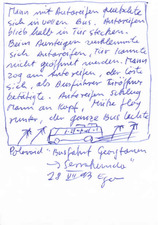 Mann mit Autoreifen quetschte
sich in vollen Bus. Autoreifen
blieb halb in Tür stecken.
Beim Aussteigen verklemmte
sich Autoreifen, Tür konnte
nicht geöffnet werden. Mann
zog am Autoreifen, der löste
sich, als Busfahrer Türöffner
betätigte. Autoreifen schlug
Mann an Kopf, Mütze flog
runter, der ganze Bus lachte
"Busfahrt